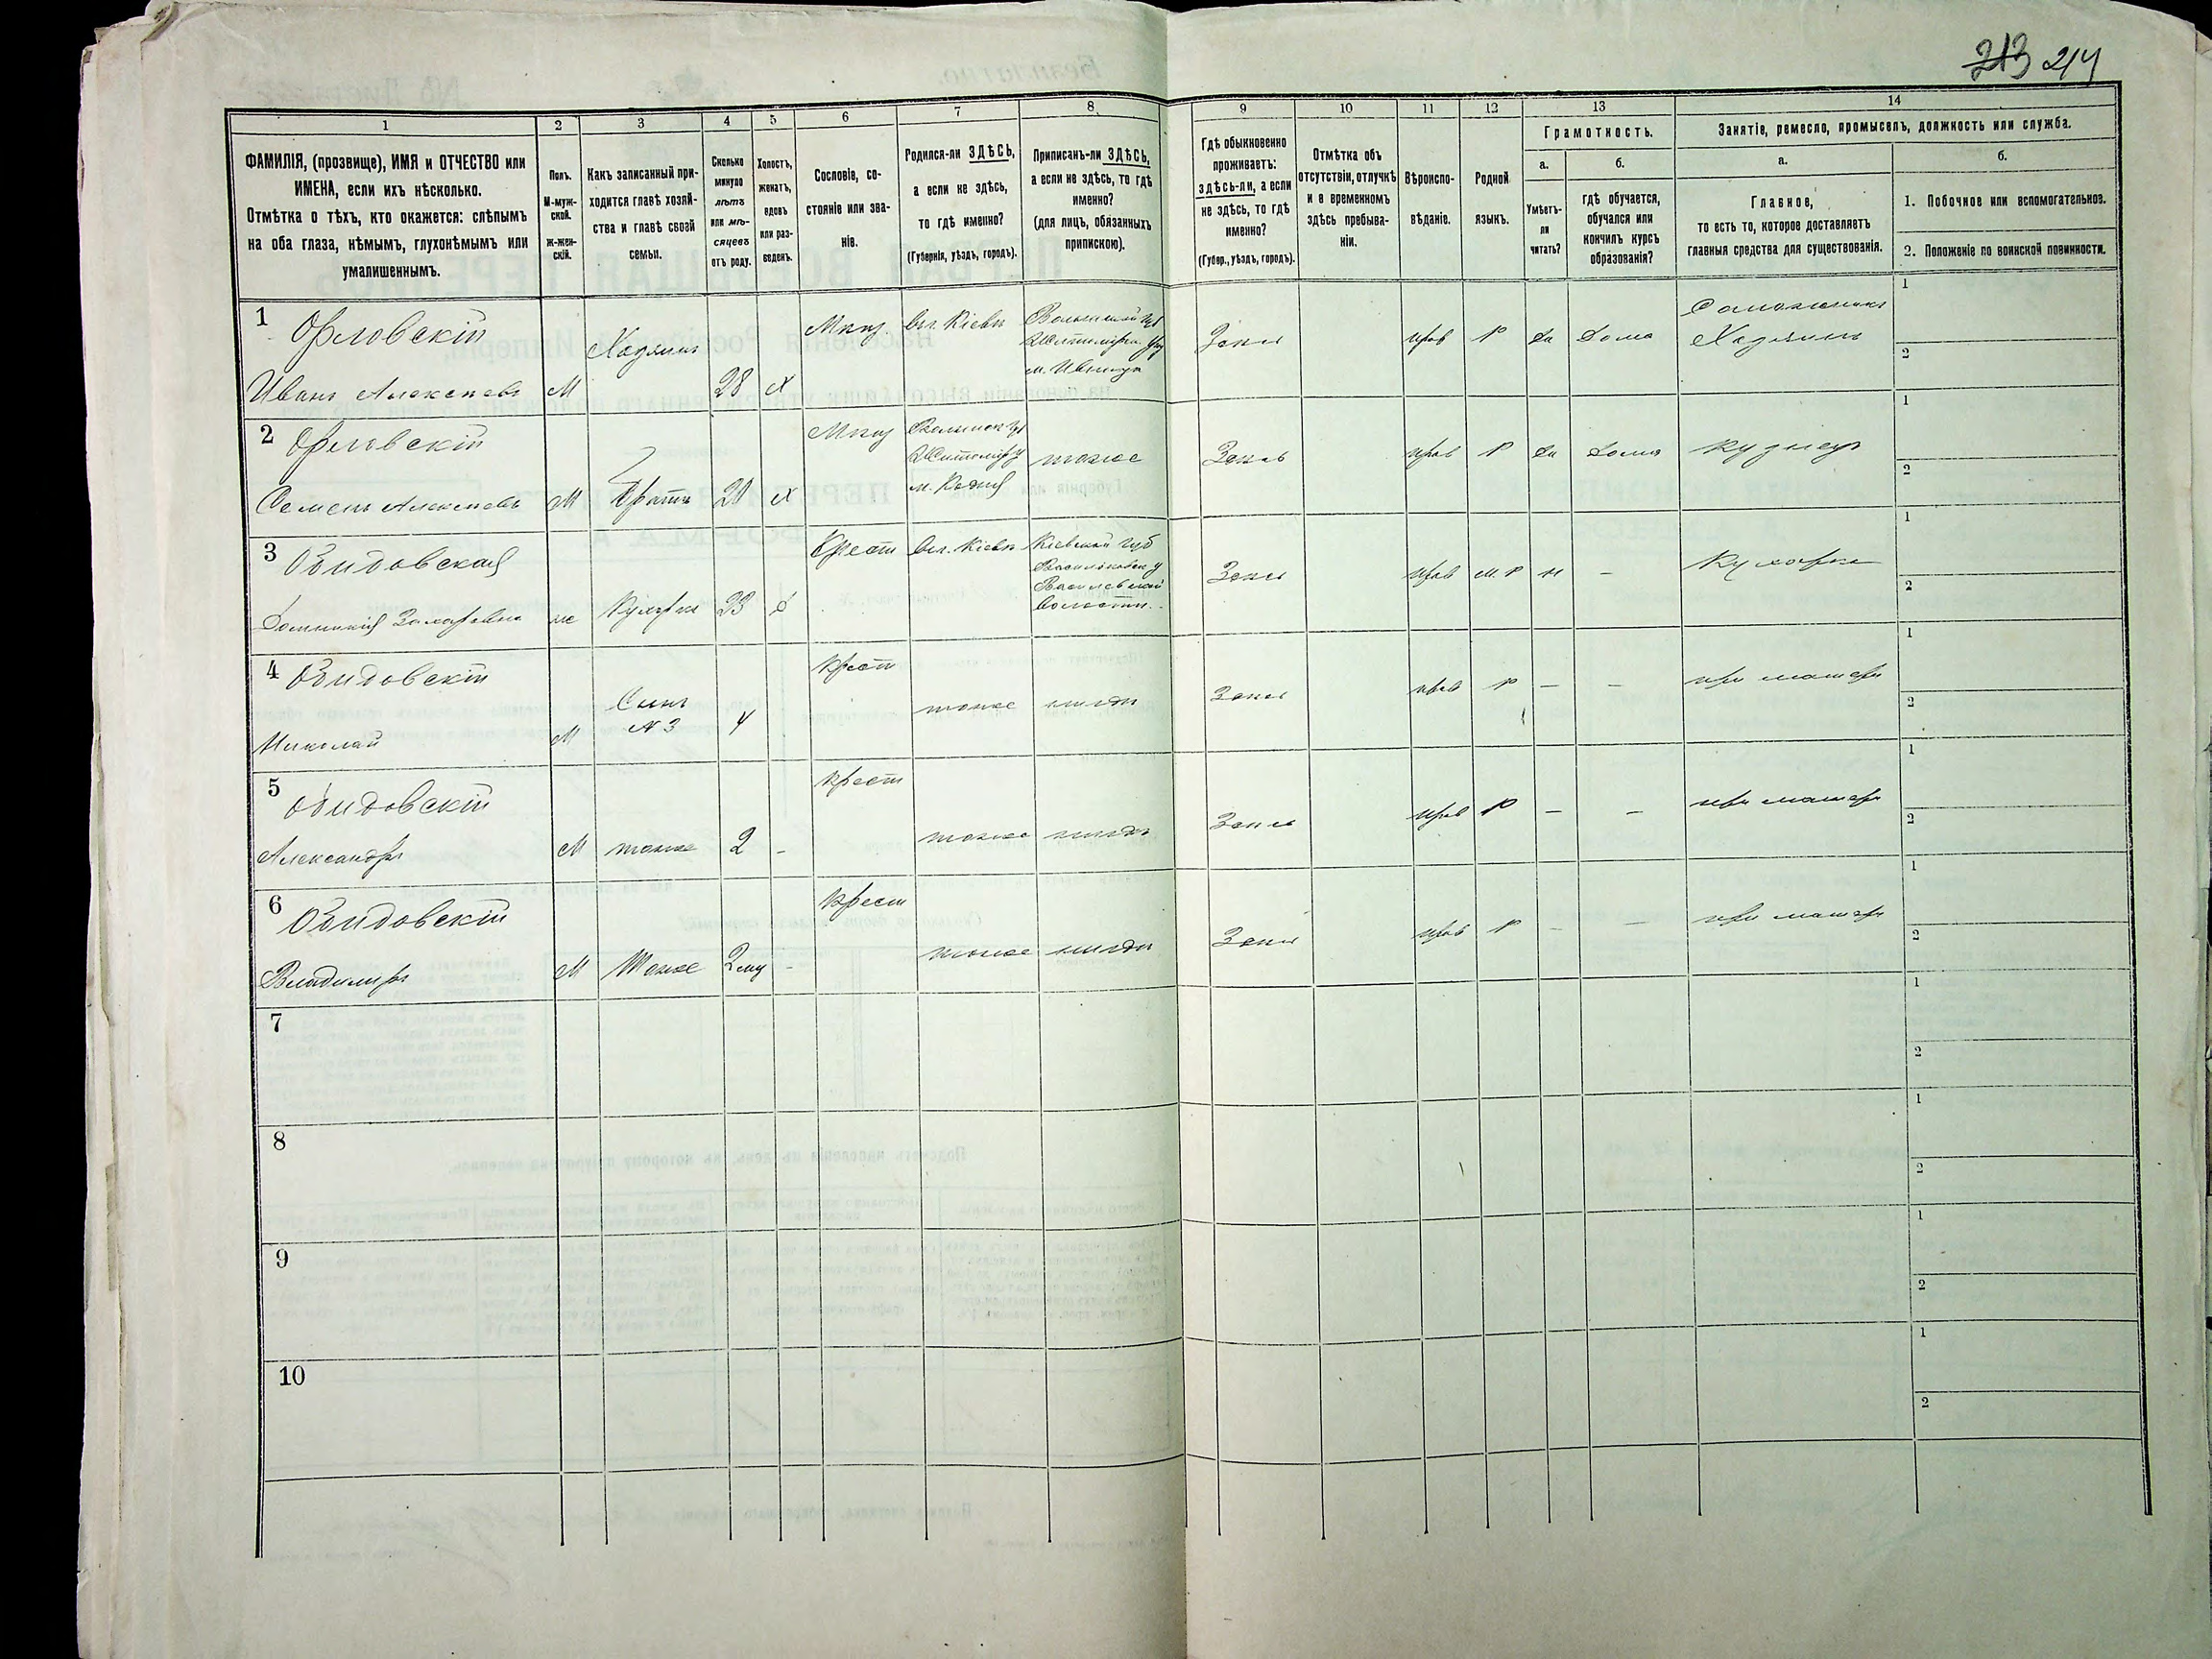 213 214
1
2
3
4
5
6
7
8
9
10
11
12
13
14
ФАМИЛІЯ, (прозвище), ИМЯ и ОТЧЕСТВО или
ИМЕНА, если ихъ нѣсколько.
Отмѣтка о тѣхъ, кто окажется: слѣпымъ
на оба глаза, нѣмымъ, глухонѣмымъ или
умалишеннымъ.
Полъ.
М-муж-
ской.
Ж-жен-
скій.
Какъ записанный при-
ходится главѣ хозяй-
ства и главѣ своей
семьи.
Сколько
минуло
лѣтъ
или мѣ-
сяцевъ
отъ роду.
Холостъ,
женатъ,
вдовъ
или раз-
веденъ.
Сословіе, со-
стояніе или зва-
ніе.
Родился-ли ЗДѢСЬ,
а если не здѣсь,
то гдѣ именно?
(Губернія, уѣздъ, городъ).
Приписанъ-ли ЗДѢСЬ,
а если не здѣсь, то гдѣ
именно?
(для лицъ, обязанныхъ
припискою).
Гдѣ обыкновенно
проживаетъ:
здѣсь-ли, а если
не здѣсь, то гдѣ
именно?
(Губер., уѣздъ, городъ).
Отмѣтка объ
отсутствіи, отлучкѣ
и о временномъ
здѣсь пребыва-
ніи.
Вѣроиспо-
вѣданіе.
Родной
языкъ.
Грамотность.
а.
Умѣетъ-
ли
читать?
б.
гдѣ обучается,
обучался или
кончилъ курсъ
образованія?
Занятіе, ремесло, промыселъ, должность или служба.
а.
Главное,
то есть то, которое доставляетъ
главныя средства для существованія.
б.
1. Побочное или вспомогательное.
2. Положеніе по воинской повинности.
1 Орловскій
Иванъ Алексѣевъ М Хозяинъ 28 Х Мѣщ. въ г. Кіевѣ
Волынской губ
м. Ивница
Здѣсь прав Р да дома
Хозяинъ
1
2
2 Орловскій
Семенъ Алексѣевъ М Братъ 20 Х Мѣщ
тоже Здѣсь прав Р да дома Кузнецъ
1
2
3
Захаровна ж Кухарка 23 Крест въ г. Кіевѣ
Кіевской губ
Волости
Здѣсь прав м. р н - Кухарка
1
2
4
Николай М Сынъ
N 3 4 крест тоже
Здѣсь прав Р - - при матери
1
2
5
Александръ М тоже 2 - крест тоже
Здѣсь прав Р - - при матери
1
2
6
Владимиръ М Тоже - крест тоже
Здѣсь прав Р - - при матери
1
2
7
1
2
8
1
2
9
1
2
10
1
2